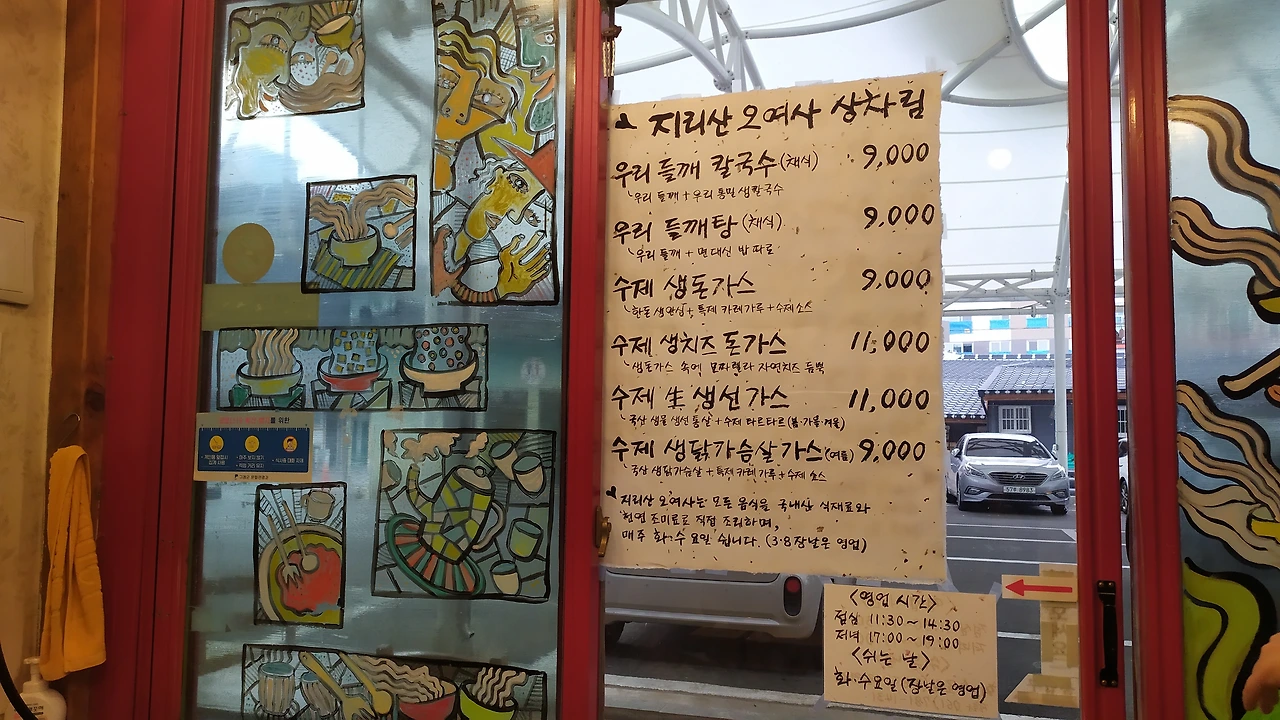 지리산 오여사 상차림
우리 들깨 칼국수(채식) 9,000
우리 들깨 + 우리 통밀 생칼국수
우리 들깨탕 (채식) 9,000
우리 들깨 + 면대신 밥 따로
수제 생돈가스 9,000
한돈 생안심 + 특제 카레가루 + 수제소스
수제 생치즈 돈가스 11,000
생돈가스 속에 모짜렐라 자연치즈 듬뿍
수제 生 생선가스 11,000
국산 생물 생선 통살 + 수제 타르타르(봄·가을·겨울)
수제 생닭가슴살가스(여름) 9,000
국산 생닭가슴살 + 특제 카레가루 + 수제 소스
지리산 오여사는 모든 음식을 국내산 식재료와
천연 조미료로 직접 조리하며,
매주 화·수 요일 쉽니다. (3·8장날은 영업)
<영업 시간>
점심 11:30 ~ 14:30
저녁 17:00 ~ 19:00
<쉬는 날>
화·수요일 (장날은 영업)